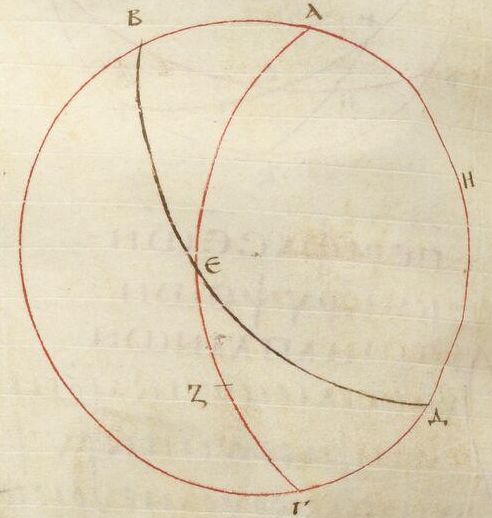 Β
Α
Η
Є
Ζ
Δ
Γ